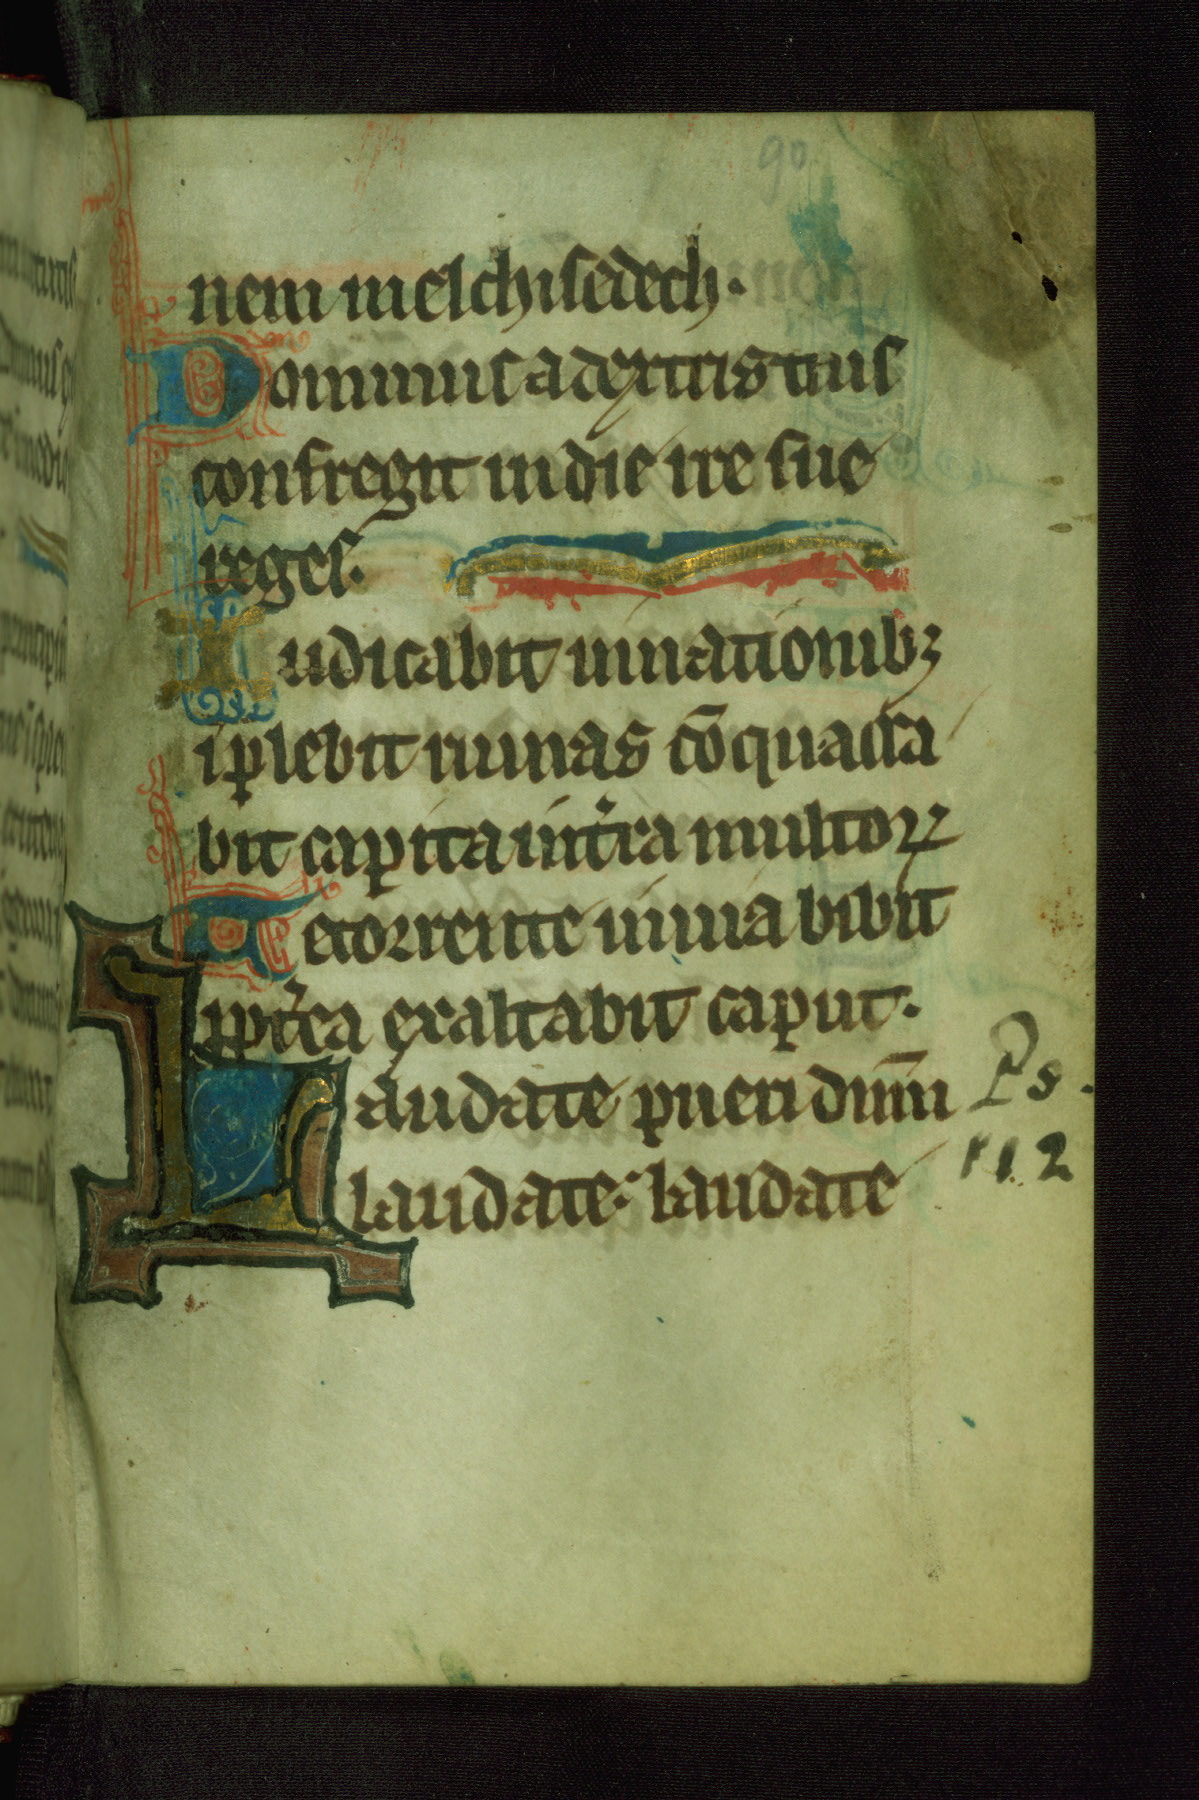 90
nem melchisedech.
Dominus a dextris tuis
confregit in die ire sue
reges.
Iudicabit in nationibꝫ
iplebit ruinas cōquassa
bit capita in tͥra multoꝝ
De torrente in uia bibit
ꝓptͥea exaltabit caput.
Laudate pueri dnm̄
laudate: laudate
Ps.
112